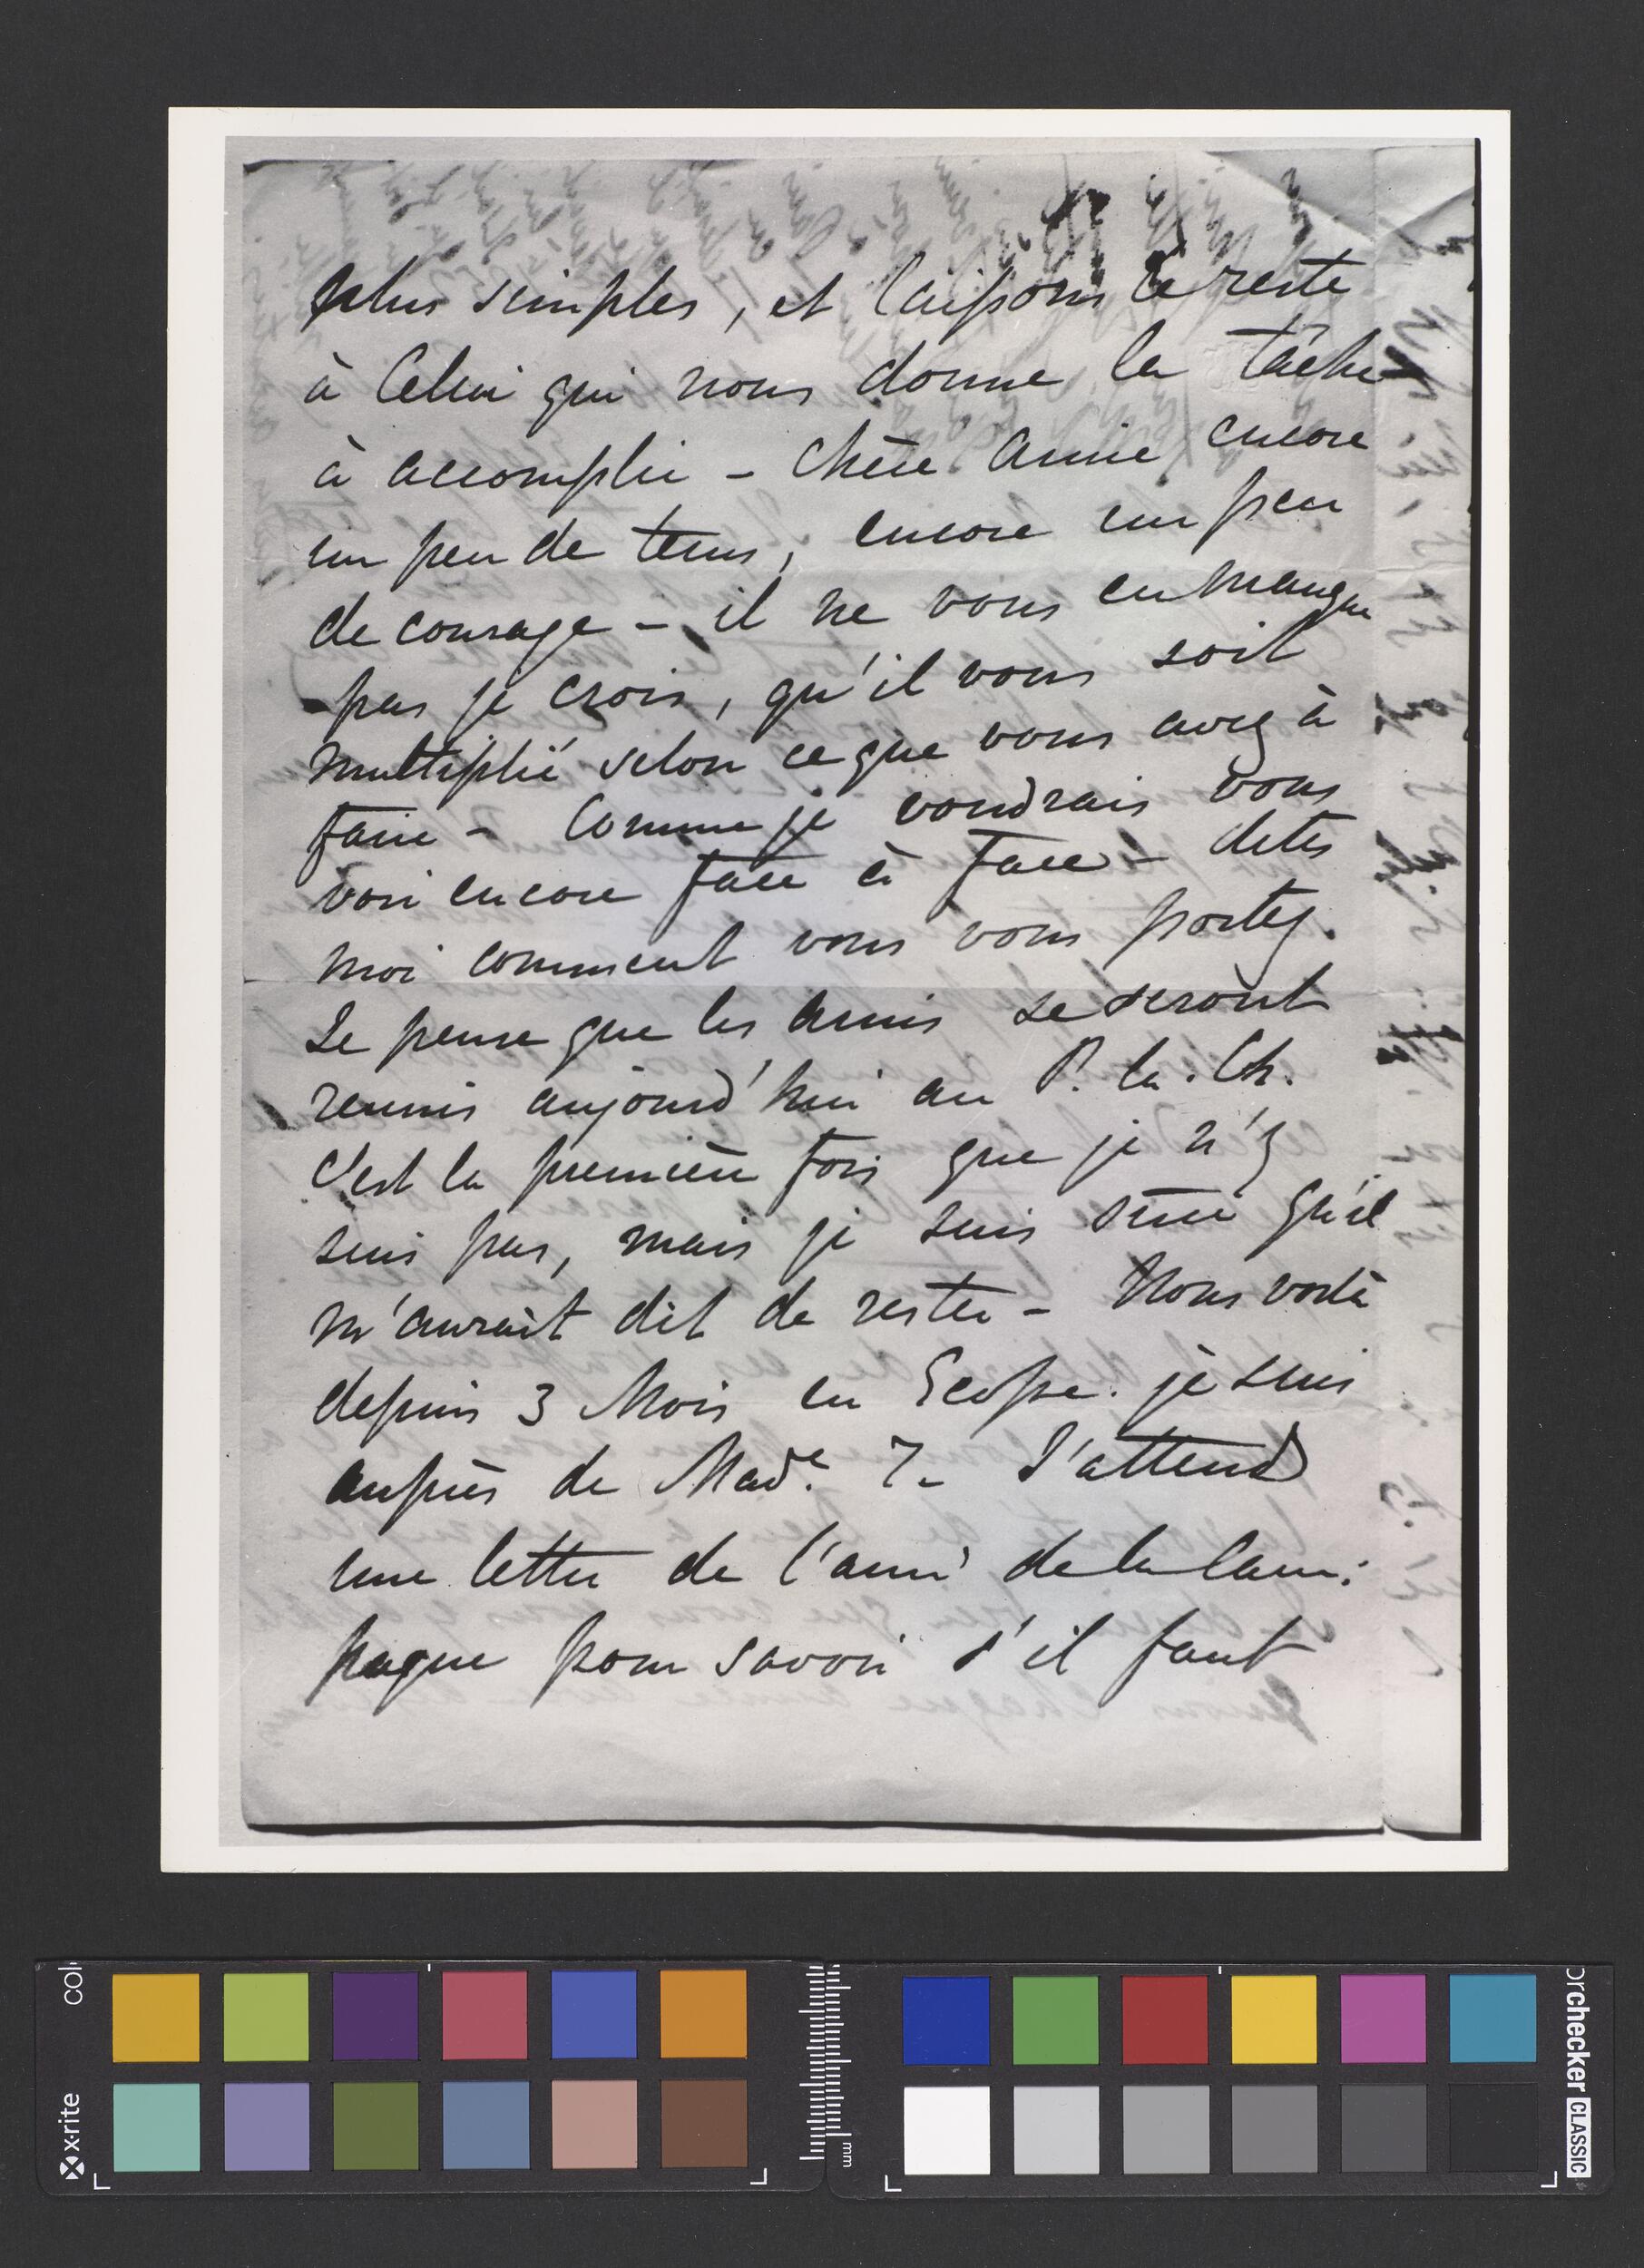 plus simples, et laissons le reste
à Celui qui nous donne la tâche
à accomplir – Chère Amie encore
un peu de tems, encore un peu
de courage – il ne vous en manque
pas je crois, qu'il vous soit
multiplié selon ce que vous avez à
faire – Comme je voudrais vous
voir encore face à face – dites
moi comment vous vous portez.
Je pense que les amis se seront
reunis aujourd'hui au P. la. Ch.
C'est la première fois que je n'y
suis pas, mais je suis sûre qu'il
m'aurait dit de rester – Nous voilà
depuis 3 Mois en Ecosse. je suis
auprès de Made. 7– J'attend
une lettre de l'ami de la Cam:
pagne pour savoir s'il faut
colo
x·rite
mm
orchecker CLASSIC